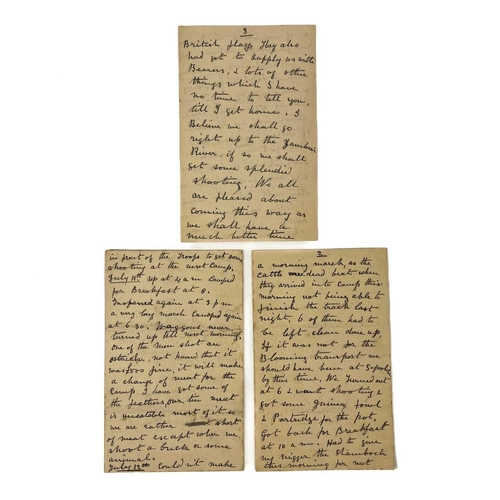 3
British flags they also
had got to supply us with
Bearers, & lots of other
things which I have
no time to tell you,
till I get home, I
Believe we shall go
right up to the Zambesi
River, if so we shall
get some splendid
shooting, We all
are pleased about
coming this way as
we shall have a
much better time
in front of the Troops to get some
shooting at the next Camp,
July 11th up at 4 am Camped
for Breakfast at 8.
Inspaned again at 3 pm
a very long march Camped again
at 6.30. Waggons never
turned up till next morning,
one of the men shot an
ostridge not known that it
was £100 fine, it will make
a change of meat for the
Camp I have got some of
the feathers, our tin meat
is uneatable most of it so
we are rather short
of meat except when we
shoot a buck or some
animal.
July 12th Couldn't make
2
a morning march, as the
Cattle were dead beat when
they arrived into Camp this
morning not being able to
finish the track last
night, 6 of them had to
be left, clean done up,
If it was not for the
Blooming transport we
should have been at
by this time, We turned out
at 6 & went shooting &
got some guinea fowl
& Partridge for the pot,
Got back for Breakfast
at 10 a m. Had to give
my nigger the Shambock
this morning for not